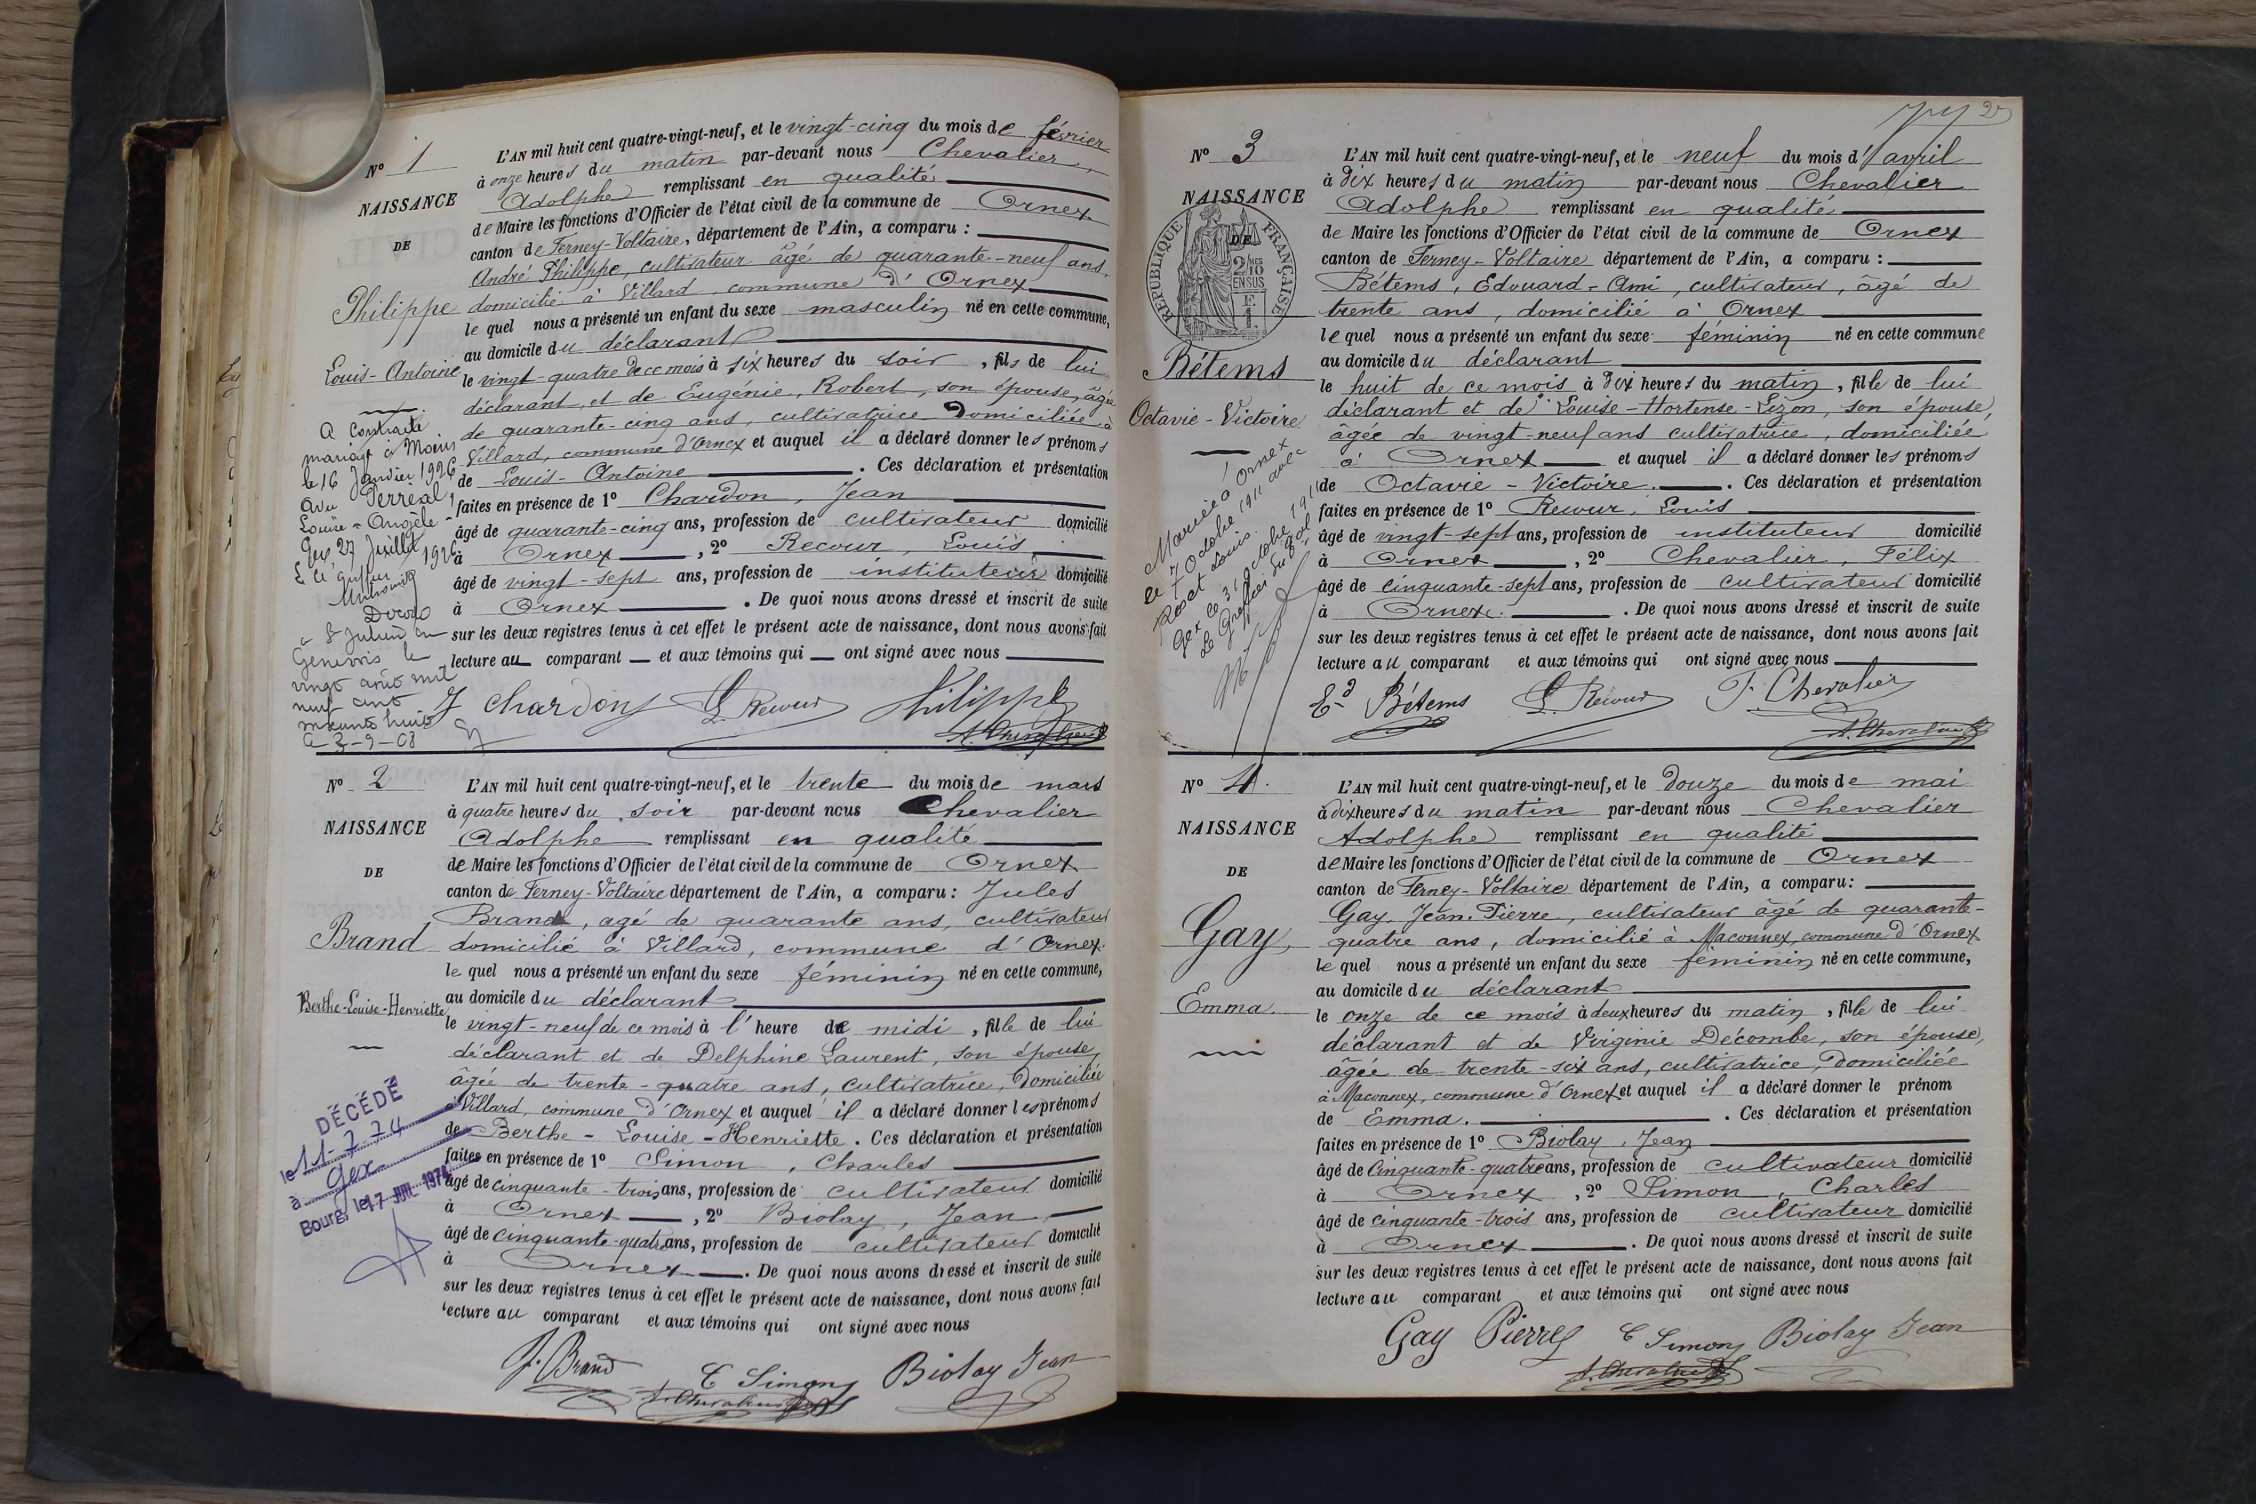 N° 1
NAISSANCE
DE
Philippe
Louis-Antoine
A contracté
mariage à Moëns
le 16 Janvier 1926
avec Perréal
Louise-Angèle
Gex 27 Juillet 1926
à St Julien en
Genevois le
vingt août mil
neuf cent
L'AN mil huit cent quatre-vingt-neuf, et le vingt-cinq du mois de février
à onze heures du matin par-devant nous Chevalier,
Adolphe remplissant en qualité
de Maire les fonctions d'Officier de l'état civil de la commune de Ornex
canton de Ferney-Voltaire, département de l'Ain, a comparu :
André Philippe, cultivateur âgé de quarante-neuf ans,
domicilié à Villard, commune d'Ornex
le quel nous a présenté un enfant du sexe masculin né en cette commune,
au domicile du déclarant
le vingt-quatre de ce mois à six heures du soir, fils de lui
déclarant, et de Eugénie, Robert, son épouse, âgée
de quarante-cinq ans, cultivatrice domiciliée à
Villard, commune d'Ornex et auquel il a déclaré donner les prénoms
de Louis-Antoine. Ces déclaration et présentation
faites en présence de 1° Chardon, Jean
âgé de quarante-cinq ans, profession de cultivateur domicilié
à Ornex, 2° Recour, Louis
âgé de vingt-sept ans, profession de instituteur domicilié
à Ornex. De quoi nous avons dressé et inscrit de suite
sur les deux registres tenus à cet effet le présent acte de naissance, dont nous avons fait
lecture au comparant et aux témoins qui ont signé avec nous
J Chardon L. Recour Philippe
A. Chevalier
N° 2
NAISSANCE
DE
Brand
Berthe-Louise-Henriette
DÉCÉDÉ
le 11-7-74
à Gex
Bourg, le 17 JUIL 1974
L'AN mil huit cent quatre-vingt-neuf, et le trente du mois de mars
à quatre heures du soir par-devant nous Chevalier
Adolphe remplissant en qualité
de Maire les fonctions d'Officier de l'état civil de la commune de Ornex
canton de Ferney-Voltaire département de l'Ain, a comparu : Jules
Brand, agé de quarante ans, cultivateur
domicilié à Villard, commune d'Ornex.
le quel nous a présenté un enfant du sexe féminin né en cette commune,
au domicile du déclarant
le vingt-neuf de ce mois à l'heure de midi, fille de lui
déclarant et de Delphine Laurent, son épouse,
âgée de trente-quatre ans, cultivatrice, domiciliée
à Villard, commune d'Ornex et auquel il a déclaré donner les prénoms
de Berthe-Louise-Henriette. Ces déclaration et présentation
faites en présence de 1° Simon, Charles
âgé de cinquante-trois ans, profession de cultivateur domicilié
à Ornex, 2° Biolay, Jean
âgé de cinquante-quatre ans, profession de cultivateur domicilié
à Ornex. De quoi nous avons dressé et inscrit de suite
sur les deux registres tenus à cet effet le présent acte de naissance, dont nous avons fait
lecture au comparant et aux témoins qui ont signé avec nous
J. Brand C Simon Biolay Jean
A. Chevalier
N° 3
NAISSANCE
DE
RÉPUBLIQUE FRANÇAISE
2 10
EN SUS
Bétems
Octavie-Victoire
Mariée à Ornex
le 7 Octobre 1911 avec
Louis.
Gex le 31 Octobre 1911
Le Greffier du
L'AN mil huit cent quatre-vingt-neuf, et le neuf du mois d'avril
à dix heures du matin par-devant nous Chevalier
Adolphe remplissant en qualité
de Maire les fonctions d'Officier de l'état civil de la commune de Ornex
canton de Ferney-Voltaire département de l'Ain, a comparu :
Bétems, Edouard-Ami, cultivateur, âgé de
trente ans, domicilié à Ornex
le quel nous a présenté un enfant du sexe féminin né en cette commune
au domicile du déclarant
le huit de ce mois à dix heures du matin, fille de lui
déclarant et de Louise-Hortense-Lizon, son épouse,
âgée de vingt-neuf ans cultivatrice, domiciliée
à Ornex et auquel il a déclaré donner les prénoms
de Octavie-Victoire. Ces déclaration et présentation
faites en présence de 1° Recour, Louis
âgé de vingt-sept ans, profession de instituteur domicilié
à Ornex, 2° Chevalier, Félix
âgé de cinquante-sept ans, profession de cultivateur domicilié
à Ornex. De quoi nous avons dressé et inscrit de suite
sur les deux registres tenus à cet effet le présent acte de naissance, dont nous avons fait
lecture au comparant et aux témoins qui ont signé avec nous
Ed Bétems L. Recour F. Chevalier
A. Chevalier
N° 4.
NAISSANCE
DE
Gay,
Emma.
L'AN mil huit cent quatre-vingt-neuf, et le douze du mois de mai
à dix heures du matin par-devant nous Chevalier
Adolphe remplissant en qualité
de Maire les fonctions d'Officier de l'état civil de la commune de Ornex
canton de Ferney-Voltaire département de l'Ain, a comparu :
Gay, Jean-Pierre, cultivateur âgé de quarante-
quatre ans, domicilié à Maconnex, commune d'Ornex
le quel nous a présenté un enfant du sexe féminin né en cette commune,
au domicile du déclarant
le onze de ce mois à deux heures du matin, fille de lui
déclarant et de Virginie Décombe, son épouse,
âgée de trente-six ans, cultivatrice, domiciliée
à Maconnex, commune d'Ornex et auquel il a déclaré donner le prénom
de Emma. Ces déclaration et présentation
faites en présence de 1° Biolay, Jean
âgé de Cinquante-quatre ans, profession de cultivateur domicilié
à Ornex, 2° Simon, Charles
âgé de cinquante-trois ans, profession de cultivateur domicilié
à Ornex. De quoi nous avons dressé et inscrit de suite
sur les deux registres tenus à cet effet le présent acte de naissance, dont nous avons fait
lecture au comparant et aux témoins qui ont signé avec nous
Gay Pierre C Simon Biolay Jean
A. Chevalier